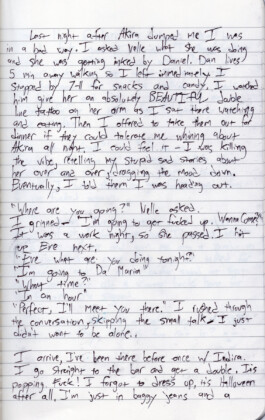 Last night after Akira dumped me I was
in a bad way. I asked Velle what she was doing
and she was getting tattooed by Daniel. Dan lives
5 min away walking so I left immediately. I
stopped by 7-11 for snacks and candy. I watched
him give her an absolutely BEAUTIFUL double
line tattoo on her arm as I sat there watching
and eating. Then I offered to take them out for
dinner if they could tolerate me whining about
Akira all night. I could feel it - I was killing
the vibe, retelling my stupid sad stories about
her over and over, dragging the mood down.
Eventually, I told them I was heading out.
"Where are you going?" Velle asked.
I grinned - I'm going to get fucked up. Wanna come?"
It was a work night, so she passed. I hit
up Eve next.
"Eve what are you doing tonight?"
"I'm going to Da Maria"
"What time?"
"In an hour"
"Perfect, I'll meet you there." I rushed through
the conversation, skipping the small talk - I just
didn't want to be alone.
I arrive, I've been there before once w/ Indira.
I go straight to the bar and get a double. Its
popping. Fuck! I forgot to dress up, its Halloween
after all, I'm just in baggy jeans and a